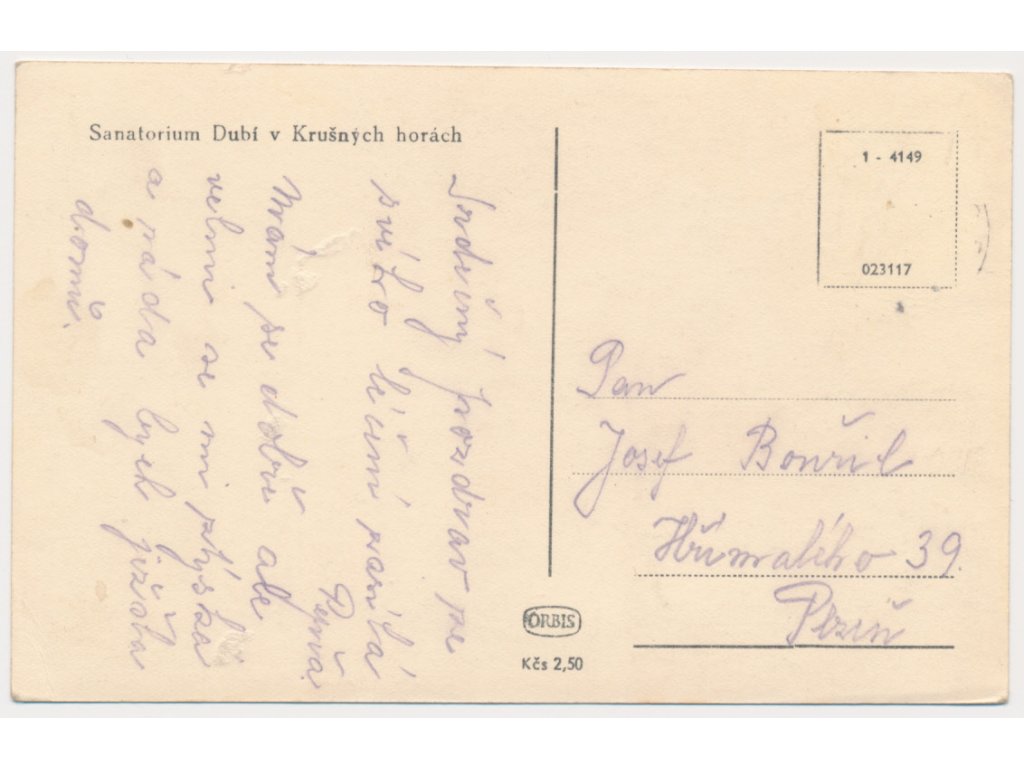 Sanatorium Dubí v Krušných horách
Srdečný pozdrav ze
svého léčení zasílá
Mám se dobře ale
velmi se mi stýská
a ráda bych již šla
domů.
1 - 4149
023117
Pan
Josef Bouřil
Hřímalého 39
Plzeň
ORBIS
Kčs 2,50